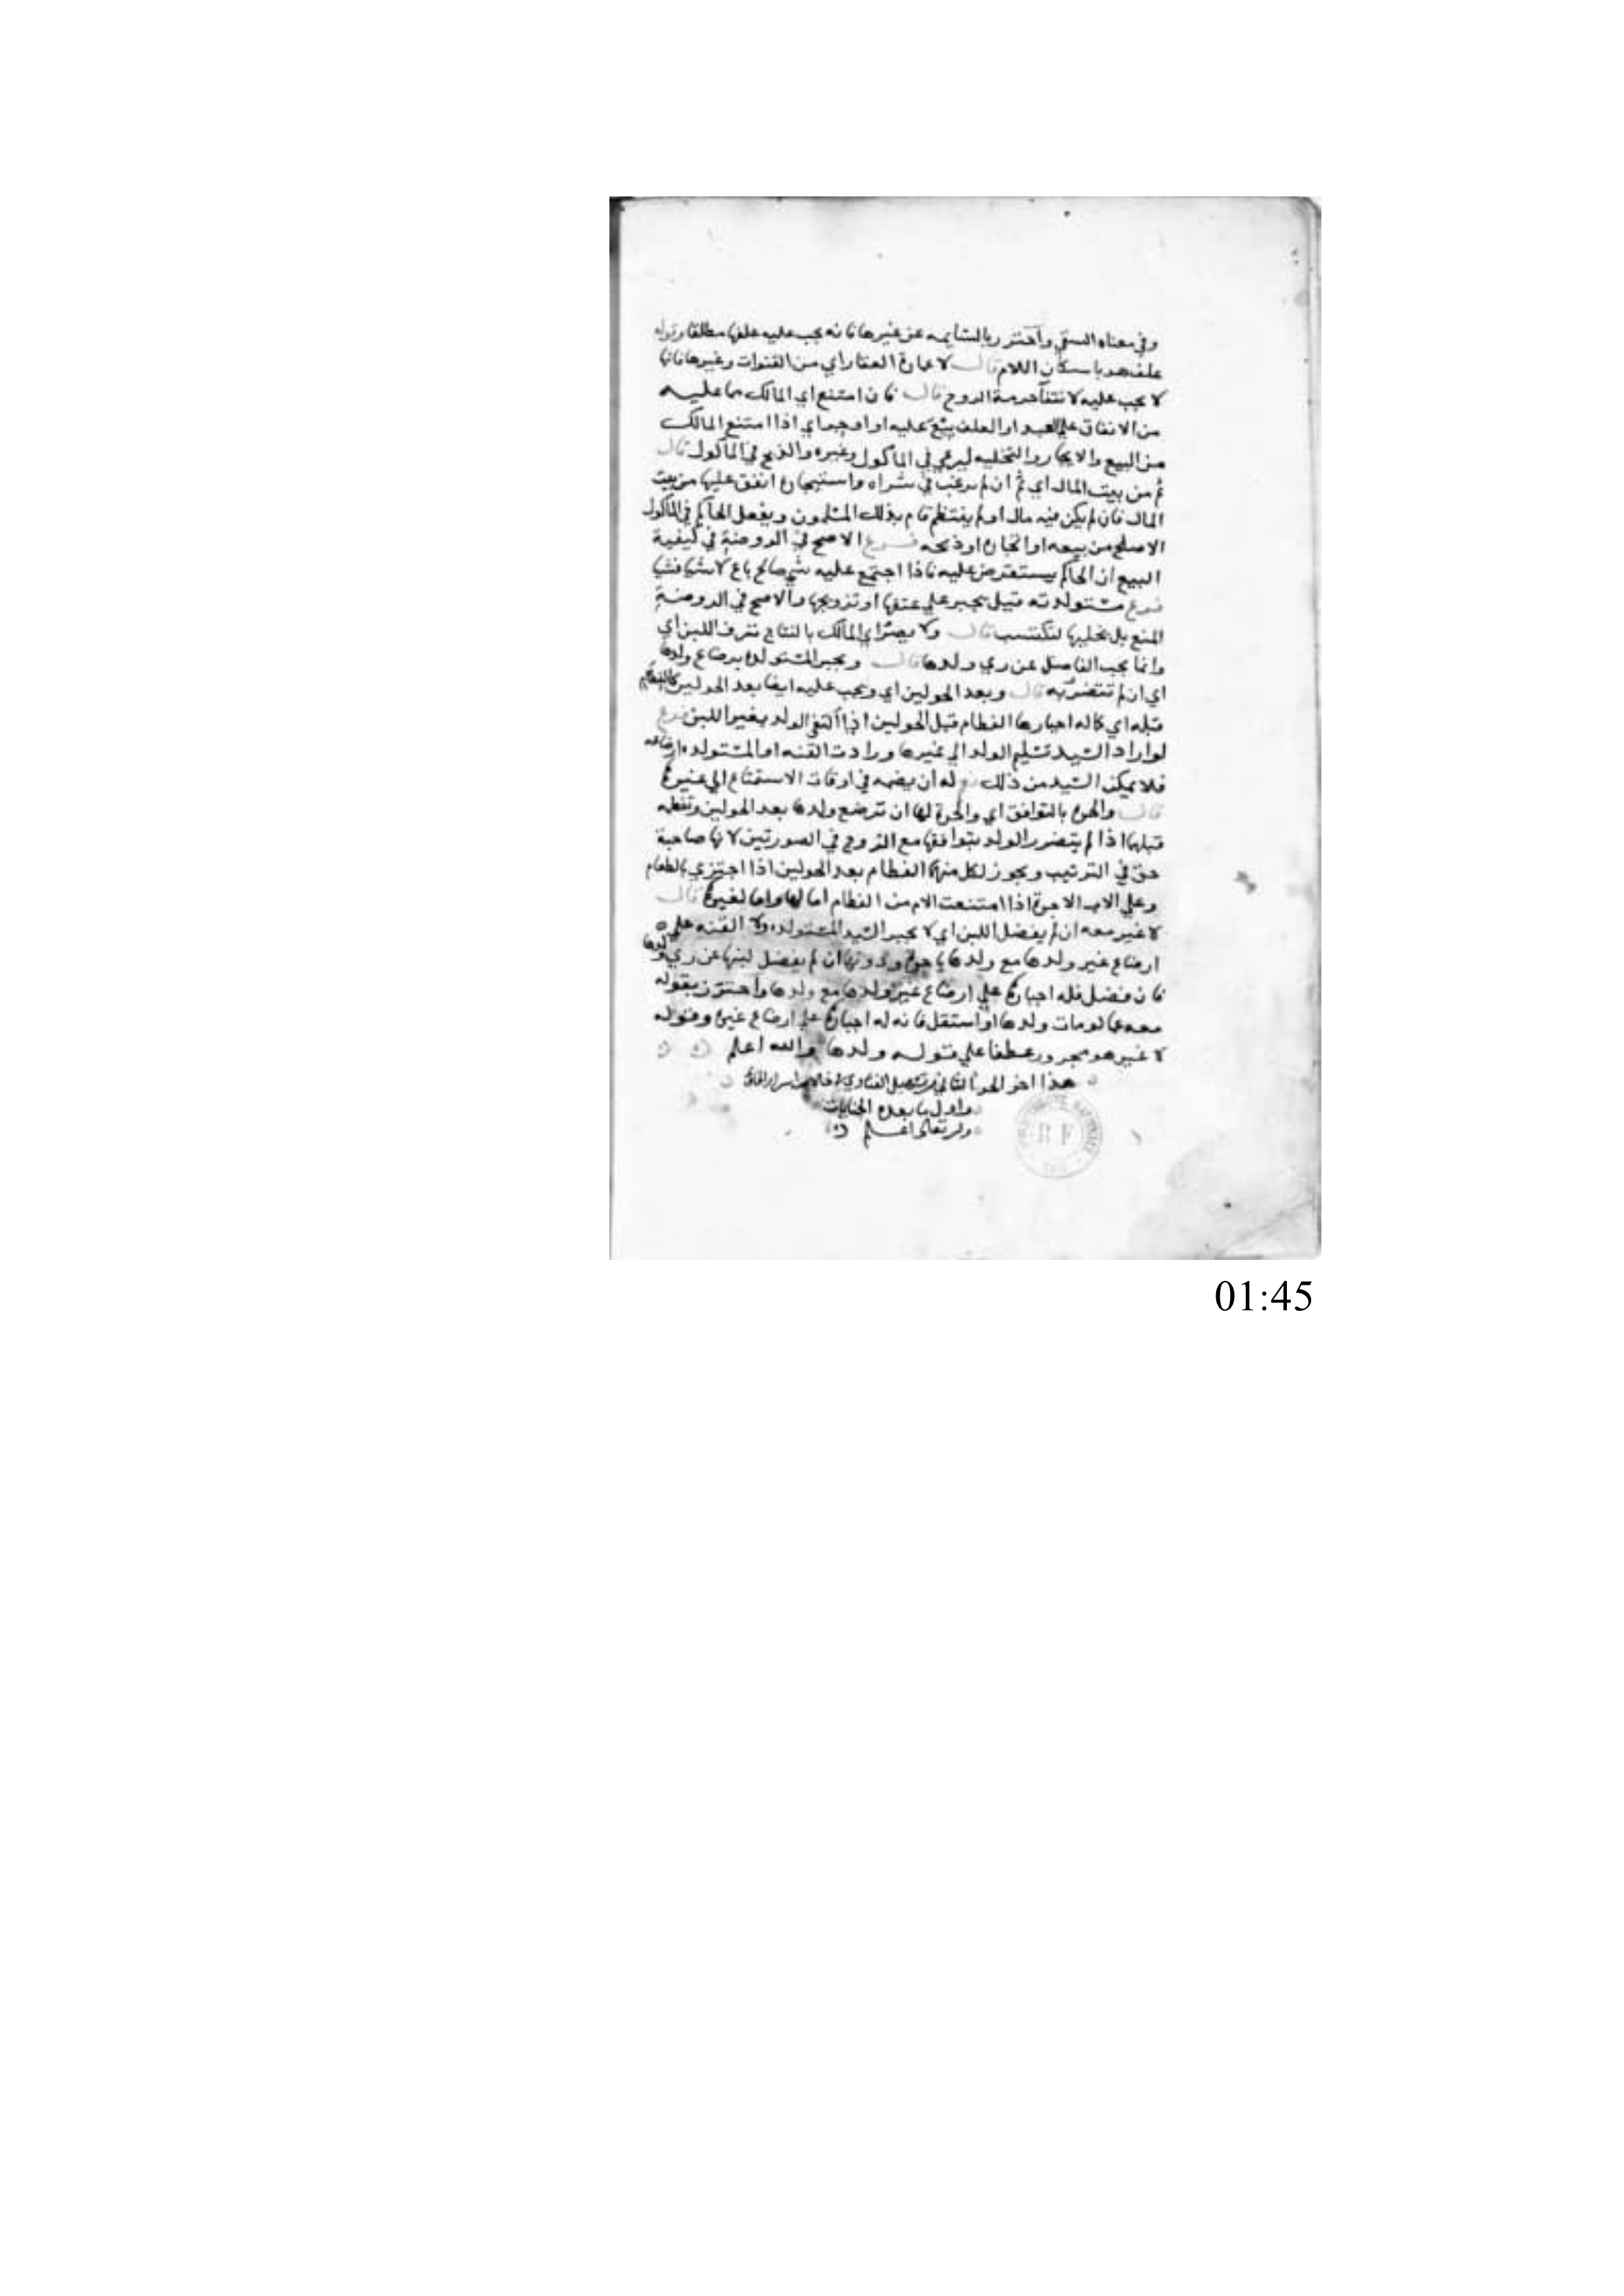 وفي معناه السقي واحترز بالسايمه عن غيرها فانه يجب عليه علفها مطلقا وقوله
علف هو باسكان اللام قال لا عمارة العقار اي من القنوات وغيرها فانها
لا يجب عليه لانتفاء حرمة الروح قال فان امتنع اي المالك مما عليه
من الانفاق علي العبد او العلف بيع عليه او اوجر اي اذا امتنع المالك
من البيع والايجار والتخليه ليرعي في الماكول وغيره والذبح في الماكول قال
ثم من بيت المال اي ثم ان لم يرغب في شراه واستيجاره انفق عليها من بيت
المال فان لم يكن فيه مال او لم ينتظم قام بذلك المسلمون ويفعل الحاكم في الماكول
الاصلح من بيعه او ايجاره او ذبحه فرع الاصح في الروضة في كيفية
البيع ان الحاكم يستقرض عليه فاذا اجتمع عليه شي صالح باع لا شيا فشيا
فرع مستولدته قيل يجبر علي عتقها او تزويجها والاصح في الروضة
المنع بل يخليها لتكتسب قال ولا يضر اي المالك بالنتاج نزف اللبن اي
وانما يجب الفاضل عن ري ولدها قال ويجبر المستولدة برضاع ولدها
اي ان لم تتضرر به قال وبعد الحولين اي ويجب عليه ايضا بعد الحولين كالفطام
قبله اي كما له اجبارها الفطام قبل الحولين اذا اكتفي الولد بغير اللبن فرع
لو اراد السيد تسليم الولد الي غيرها وارادت القنه او المستولده ارضاعه
فلا يمكن السيد من ذلك نع له ان يضمه في اوقات الاستمتاع الي غيرها
قال والحره بالتوافق اي والحرة لها ان ترضع ولدها بعد الحولين وتفطمه
قبلهما اذا لم يتضرر الولد بتوافقها مع الزوج في الصورتين لانها صاحبة
حق في الترتيب ويجوز لكل منهما الفطام بعد الحولين اذا اجتزي بالطعام
وعلي الاب الاجرة اذا امتنعت الام من الفطام اما لها واما لغيرها قال
لا غير معه ان لم يفضل اللبن اي لا يجبر السيد المستولده ولا القنه علي
ارضاع غير ولدها مع ولدها باجرة ودونها ان لم يفضل لبنها عن ري ولدها
فان فضل فله اجبارها علي ارضاع غير ولدها مع ولدها واحترز بقوله
معه عما لو مات ولدها او استقل فانه له اجبارها علي ارضاع غيره وقوله
لا غير هو مجرور عطفا علي قوله ولدها والله اعلم
هذا اخر الجزء الثاني من الفتاوي
واول ما بعده الجنايات
والله تعالى اعلم
B F
01:45